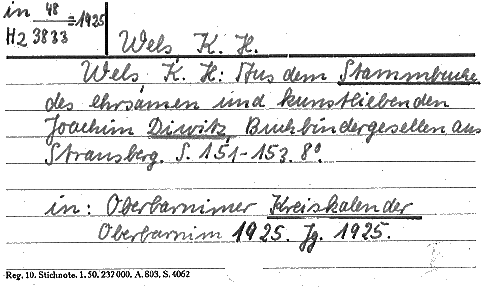 in 48 = 1925
HZ 3833
Wels, K. H.
Wels, K. H: Aus dem Stammbuche
des ehrsamen und kunstliebenden
Joachim Diwitz, Buchbindergesellen aus
Strausberg. S. 151-153. 8°.
in: Oberbarnimer Kreiskalender
Oberbarnim 1925. Jg. 1925.
Reg. 10. Stichnote. 1. 50. 237 000. A. 803. S. 4062